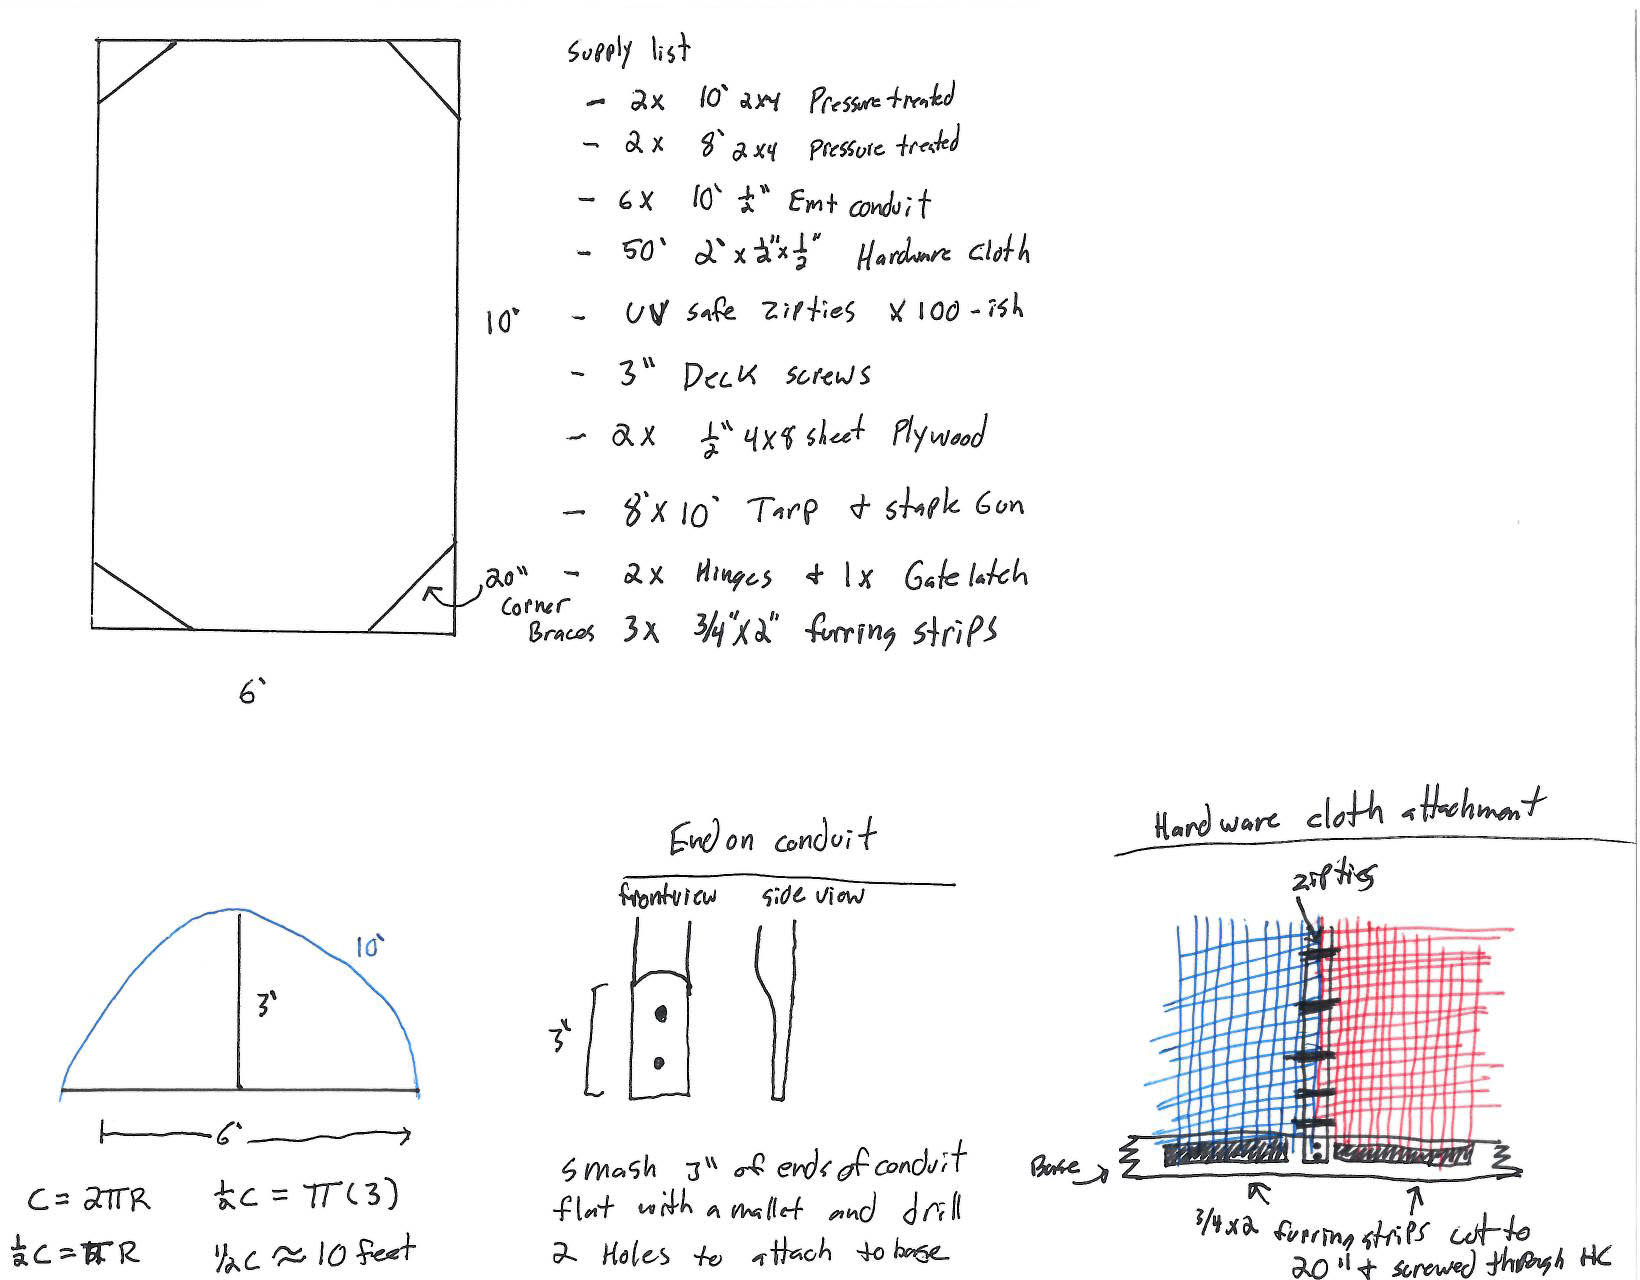 Supply list
- 2x 10' 2x4 Pressure treated
- 2x 8' 2x4 Pressure treated
- 6x 10' 1/2" Emt conduit
- 50' 2' x 1/2" x 1/2" Hardware Cloth
- UV safe zipties x 100-ish
- 3" Deck screws
- 2x 1/2" 4x8 sheet Plywood
- 8'x10' Tarp & staple Gun
- 2x Hinges & 1x Gate latch
3x 3/4"x2" furring strips
10'
20"
Corner
Braces
6'
10'
3'
6'
C = 2πR
1/2 C = πR
1/2 C = π(3)
1/2 C ≈ 10 feet
End on conduit
frontview
side view
3"
smash 3" of ends of conduit
flat with a mallet and drill
2 Holes to attach to base
Hardware cloth attachment
zipties
Base
3/4x2 furring strips cut to
20" & screwed through HC